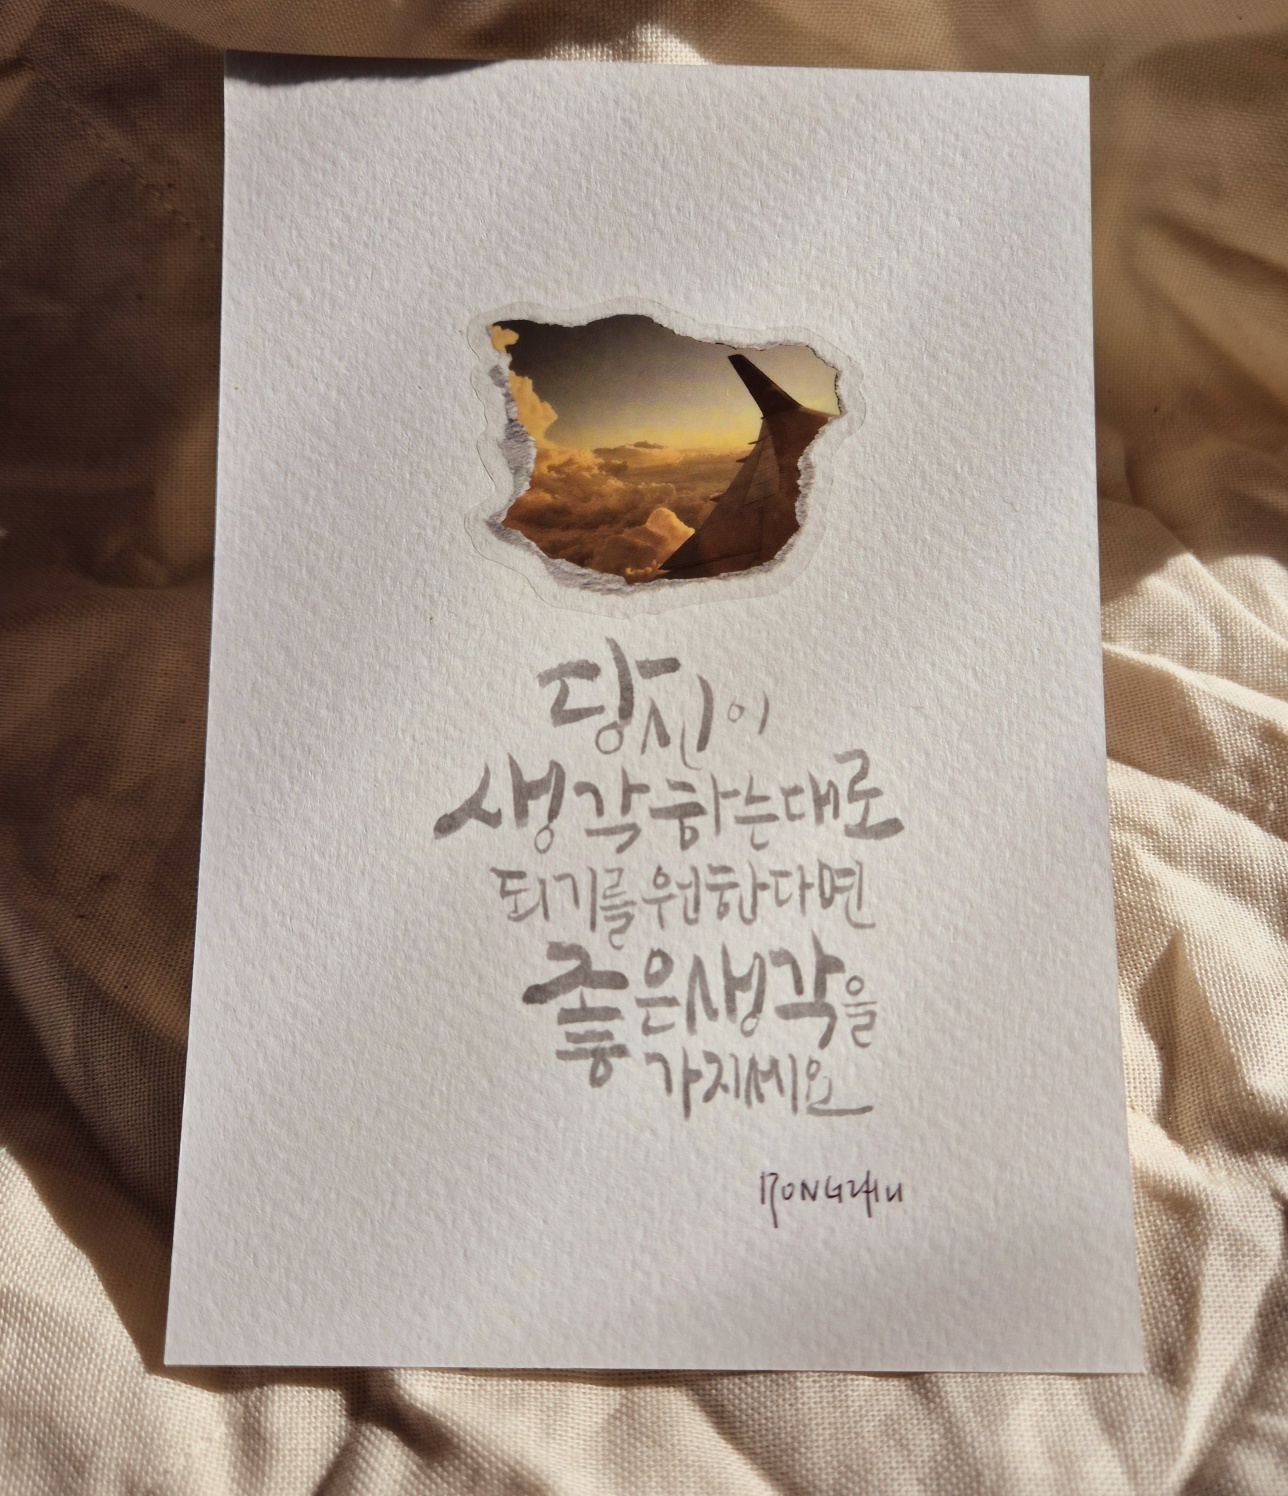 당신이
생각하는대로
되기를원한다면
좋은생각을
가지세요
RONGZHU